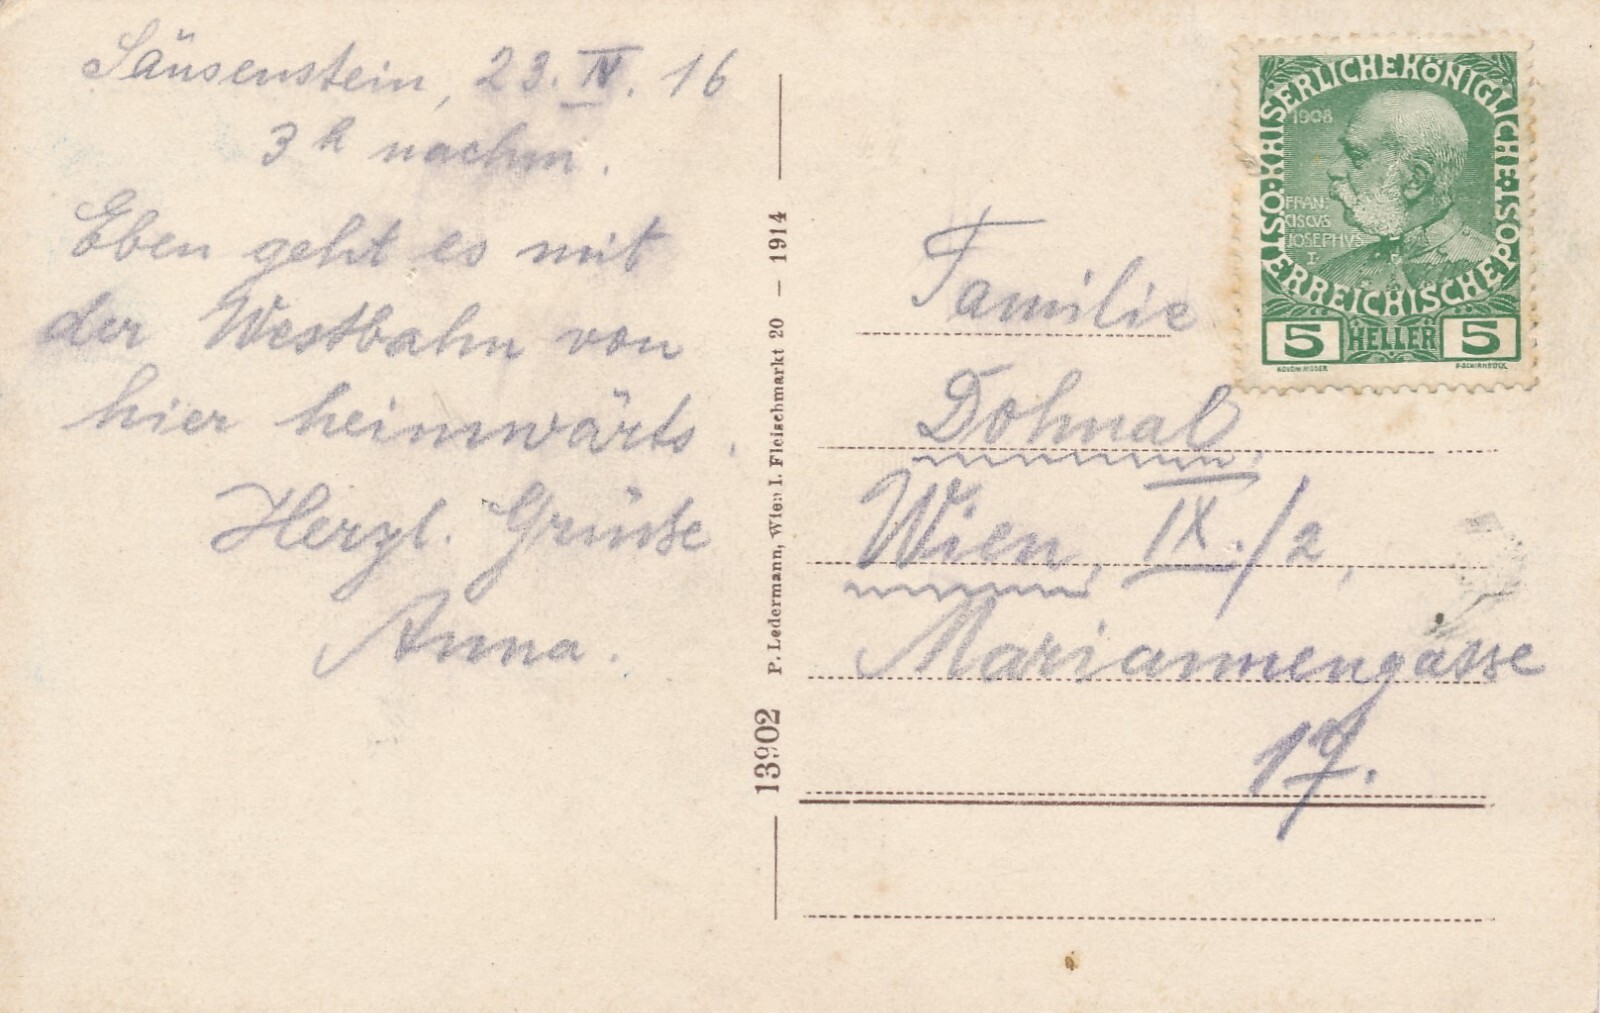 Säusenstein, 23. IV. 16
3h nachm.
Eben geht es mit
der Westbahn von
hier heimwärts.
Herzl. Grüsse
Anna.
P. Ledermann, Wien I. Fleischmarkt 20 — 1914
13902
KAISERLICHE KÖNIGLICHE ÖSTERREICHISCHE POST
1908
FRAN-
CISCVS
JOSEPHVS
I
5 HELLER 5
Familie
Dohnal
Wien, IX./2,
Mariannengasse
17.